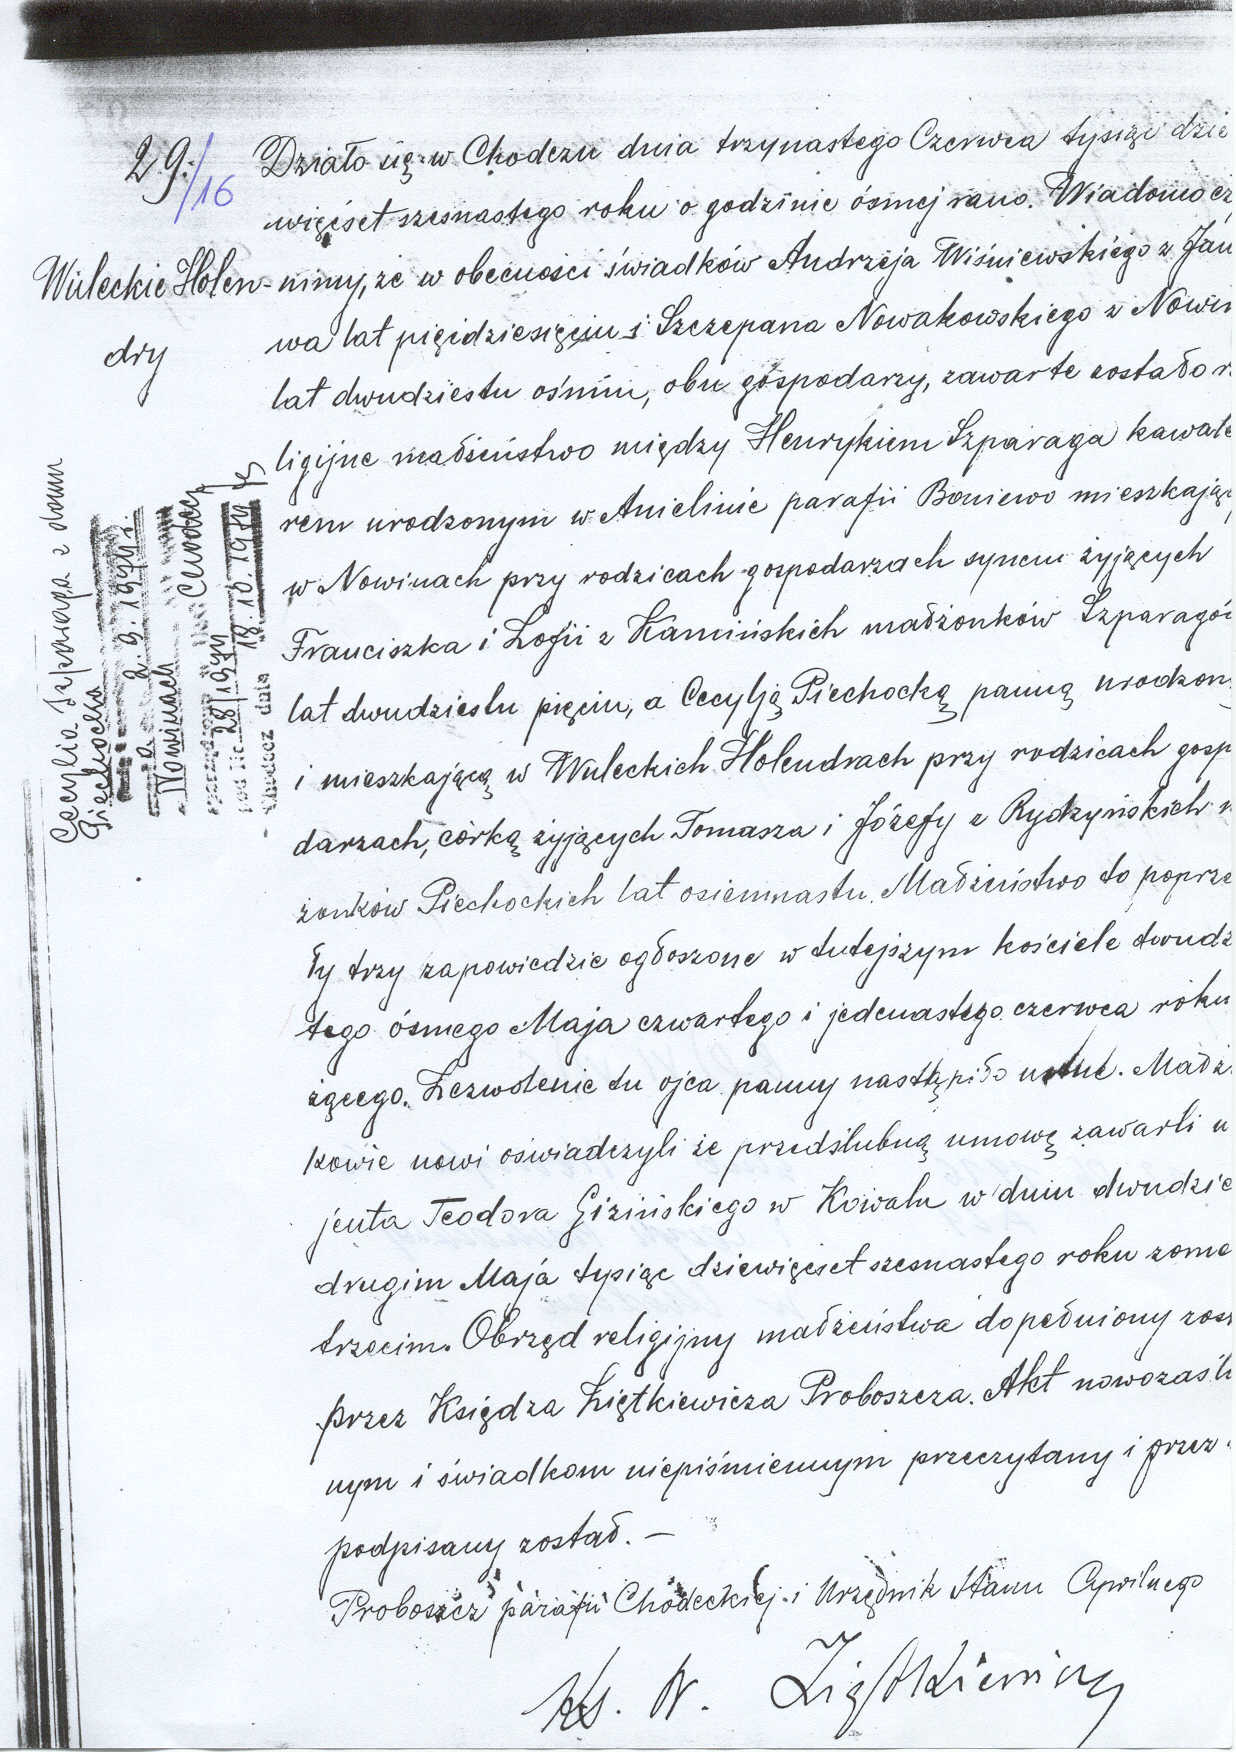 29./16
Wuleckie Holen-
dry
Działo się w Chodczu dnia trzynastego Czerwca tysiąc dzie
więćset szesnastego roku o godzinie ósmej rano. Wiadomo cz
nimy, że w obecności świadków Andrzeja Wiśniewskiego z Jan
wa lat pięćdziesięciu i Szczepana Nowakowskiego z Nowin
lat dwudziestu ośmiu, obu gospodarzy, zawarte zostało r
ligijne małżeństwo między Henrykiem Szparaga kawale
rem urodzonym w Anielinie parafii Boniewo mieszkając
w Nowinach przy rodzicach gospodarzach synem żyjących
Franciszka i Zofii z Kamińskich małżonków Szparagó
lat dwudziestu pięciu, a Cecylją Piechocką panną urodzon
i mieszkającą w Wuleckich Holendrach przy rodzicach gosp
darzach, córką żyjących Tomasza i Józefy z Rydzyńskich
żonków Piechockich lat osiemnastu. Małżeństwo to poprze
ły trzy zapowiedzie ogłoszone w tutejszym kościele dwudz
tego ósmego Maja czwartego i jedenastego czerwca roku
żącego. Zezwolenie tu ojca panny nastąpiło ustne. Małż
kowie nowi oświadczyli że przedślubną umowę zawarli u
jenta Teodora Gizińskiego w Kowalu w dniu dwudzie
drugim Maja tysiąc dziewięćset szesnastego roku
trzecim. Obrzęd religijny małżeństwa dopełniony zos
przez Księdza Ziętkiewicza Proboszcza. Akt nowozaśl
nym i świadkom niepiśmiennym przeczytany i przez
podpisany został. —
Proboszcz parafii Chodeckiej i Urzędnik Stanu Cywilnego
Ks. W. Ziętkiewicz
Cecylia Szparaga z domu
Piechocka
2.9.1974 r.
Nowinach
Chodecz
28/1974
Chodecz dnia 18.10.1974